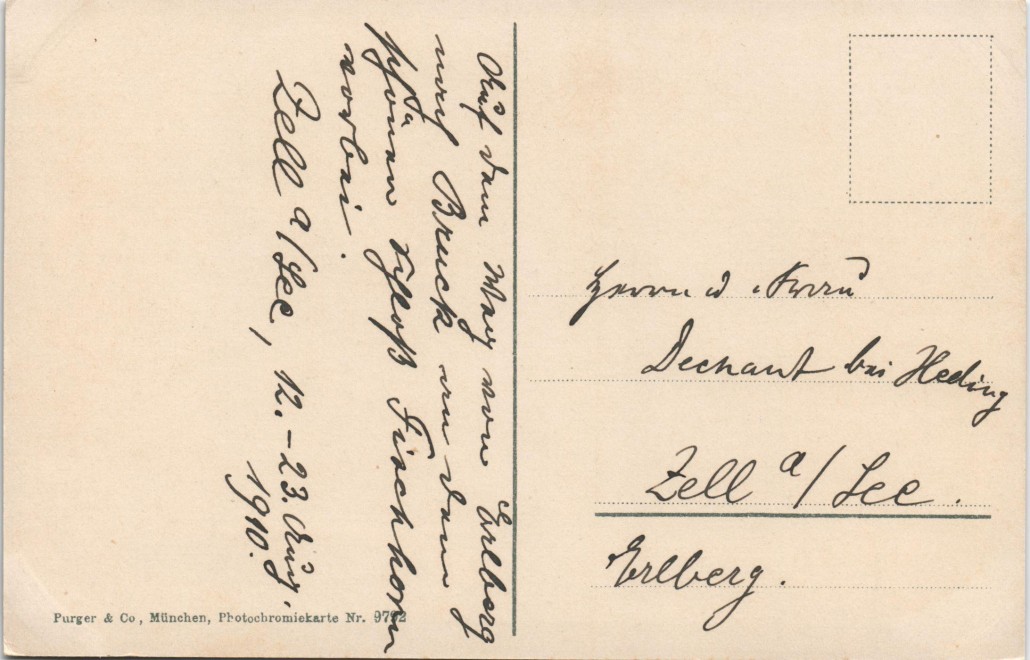 Auf dem Weg von Erlberg
nach Bruck an dem
schönen Schloß Fischhorn
vorbei.
Zell a/See, 12.–23. Aug.
1910.
Herrn u. Frau
Dechant bei Heding
Zell a/See.
Erlberg.
Purger & Co, München, Photochromiekarte Nr. 9792